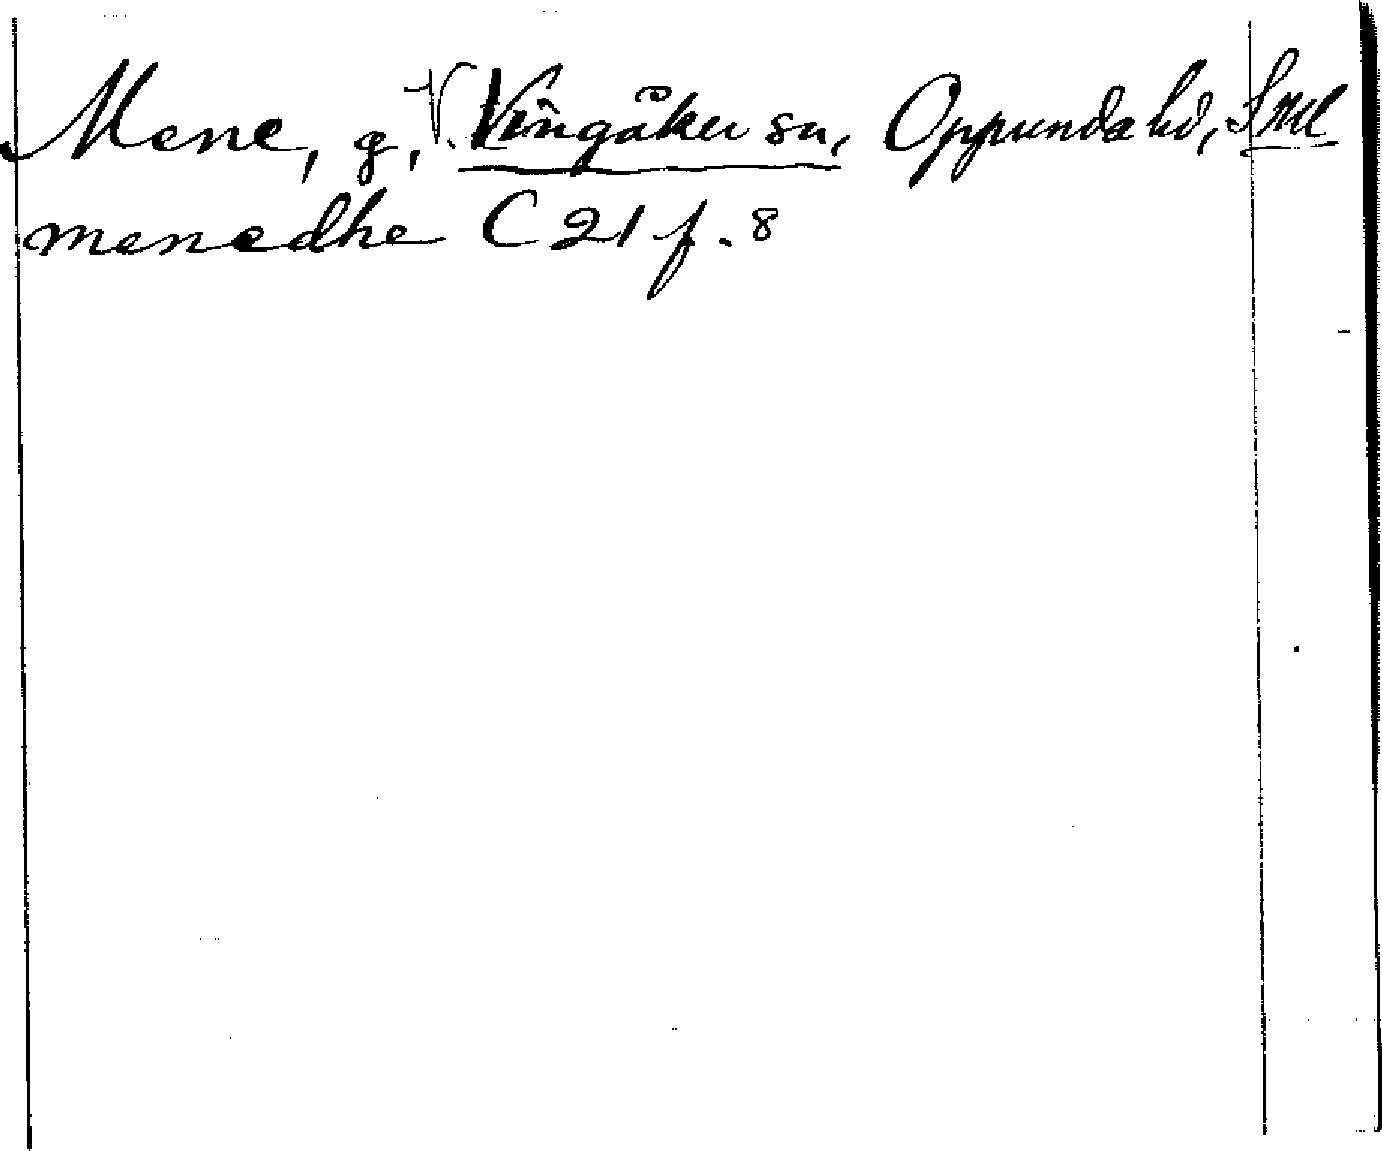 Mene, g, V. Vingåker sn, Oppunda hd, Sml
menedhe C 21 f. 8